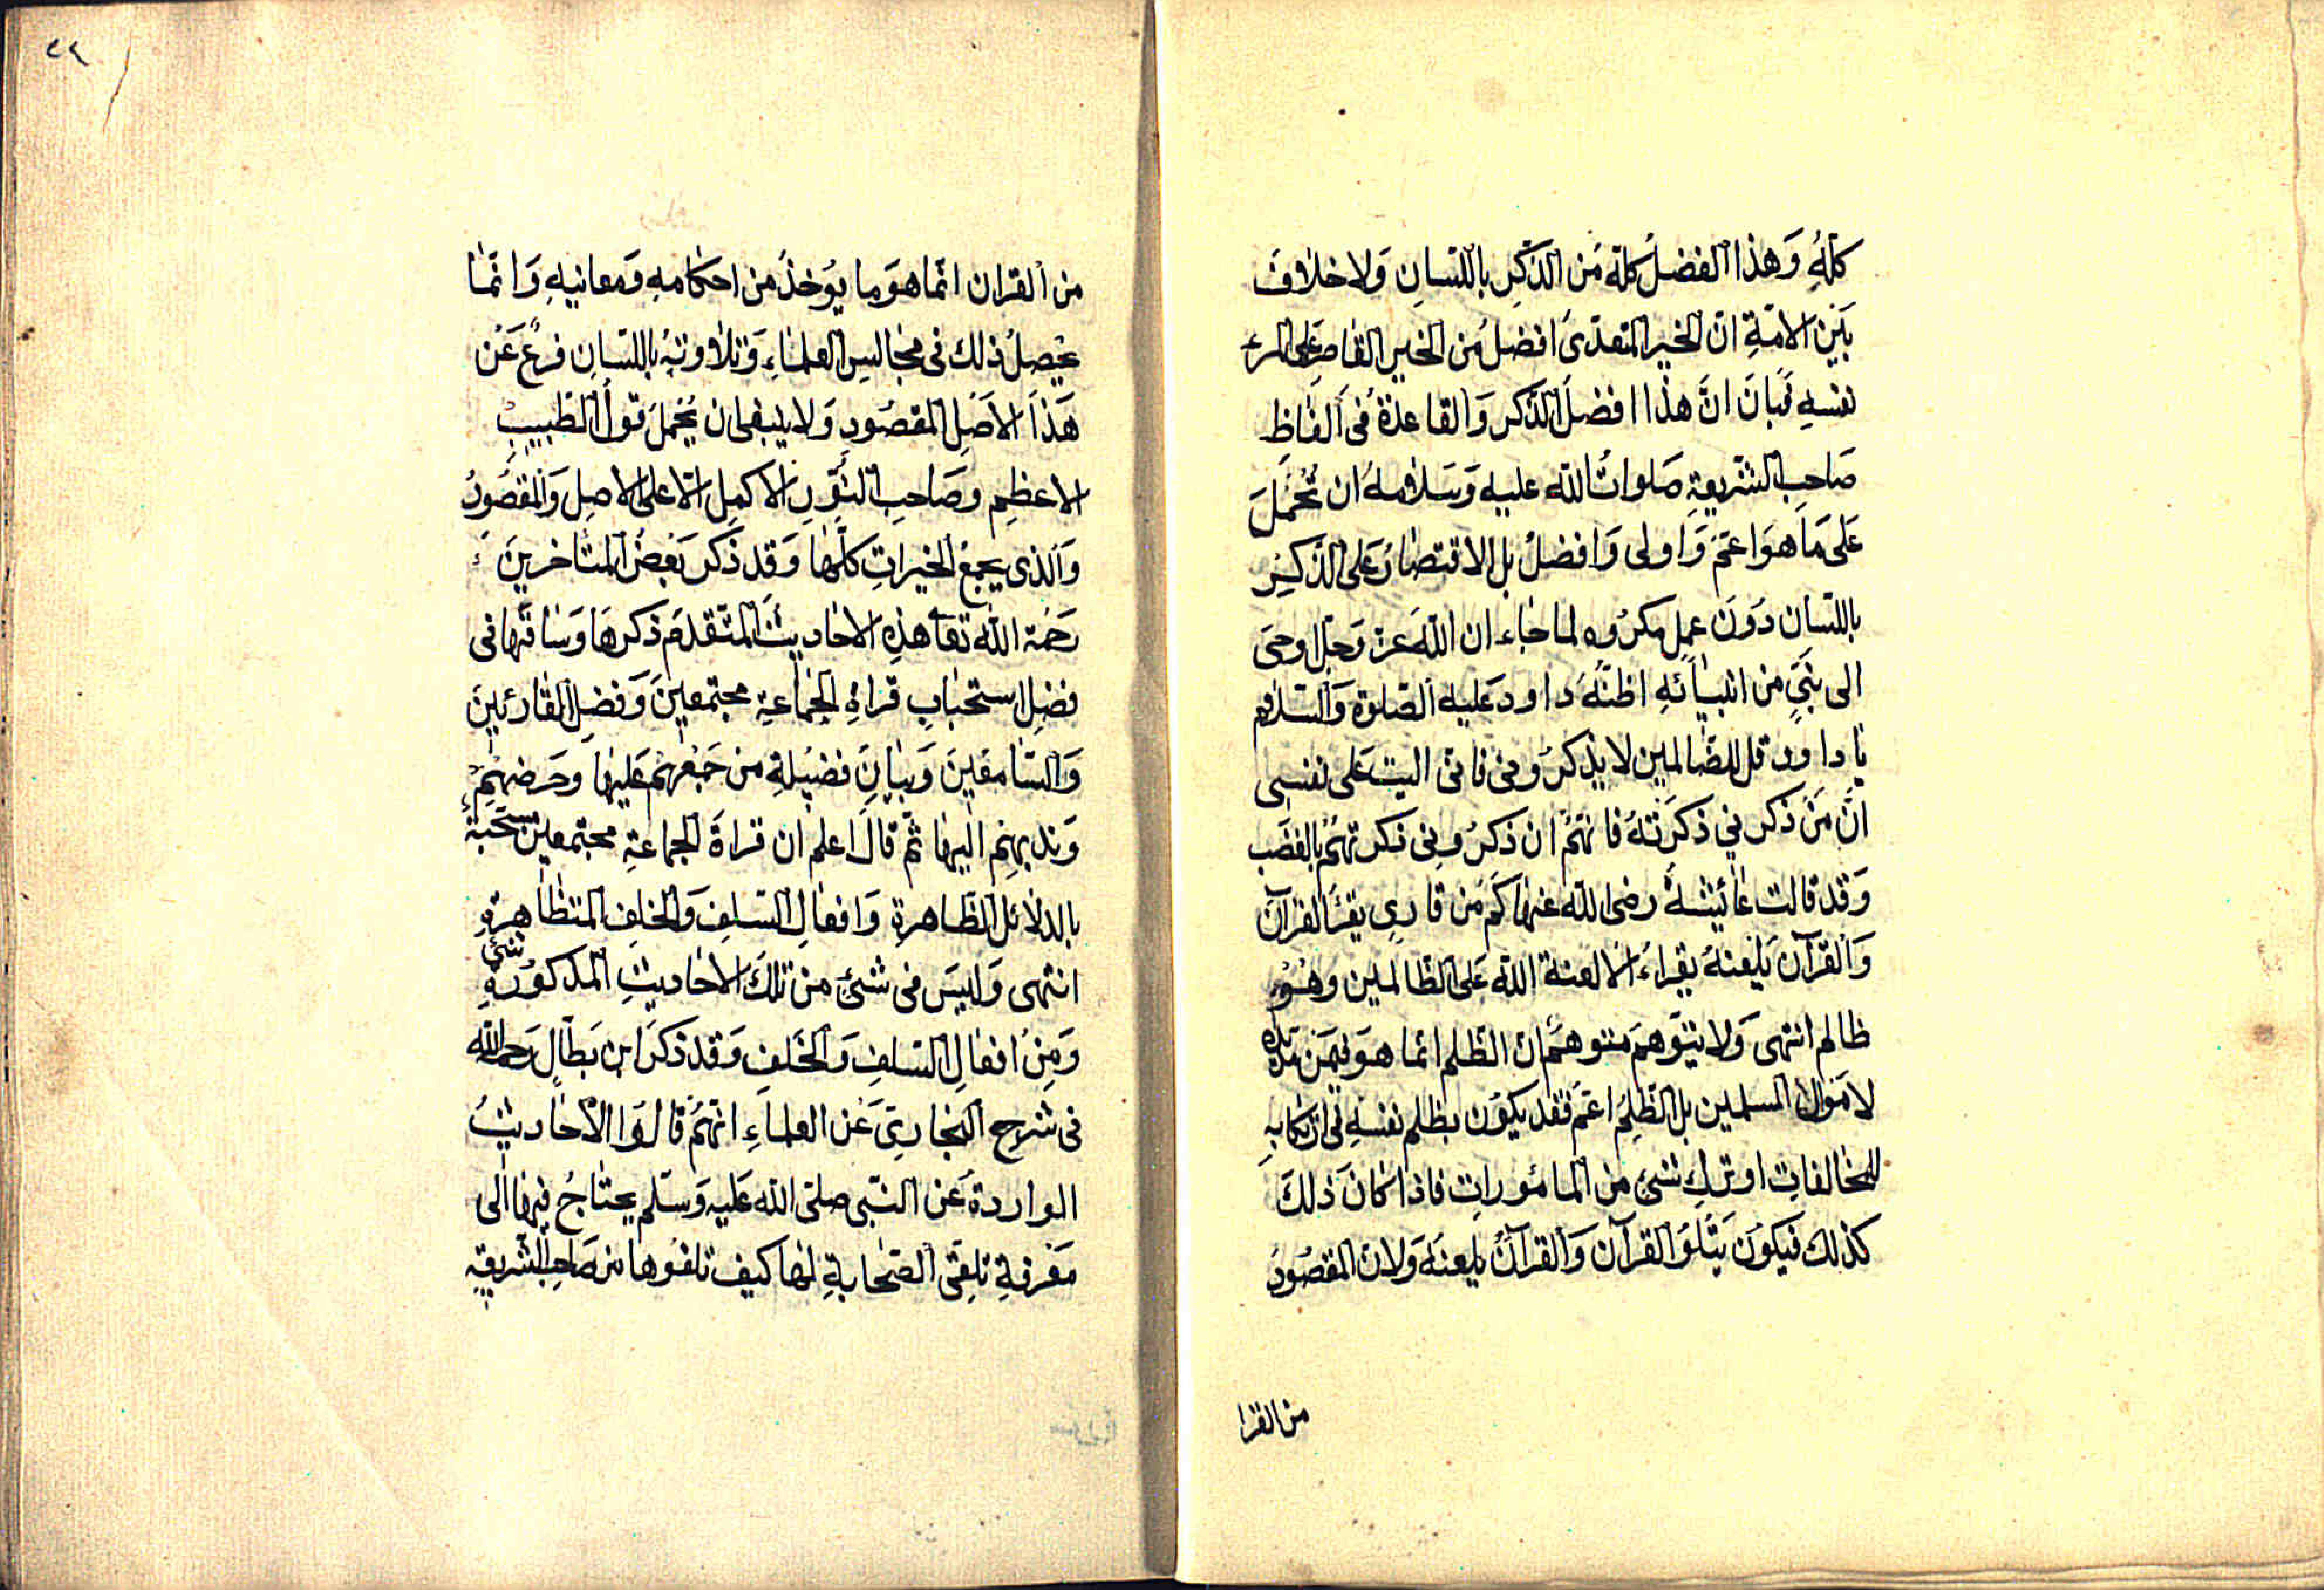 كلّهِ وَهذا الفضلُ كلهُ مَن الذّكرِ باللّسانِ وَلا خلافَ
بَيَن الامّةِ انّ الخيرَ المتعدّىَ افضلُ مَن الخير القاصرِ عَلى المرء
نفسهِ فَبانَ انَّ هذا افضلُ الذّكر وَالقاعدةُ فى اَلفاظِ
صَاحبِ الشّريعةِ صَلواتُ الله عليه وَسَلامهُ ان تُحْمَلَ
عَلى مَا هوَ اعمّ وَاولى وَافضلُ بل الاقتصارُ عَلى الذّكرِ
باللّسان دوُنَ عملٍ مكرُوه لما جاء ان اللهَ عزّ وَجلّ اوحىَ
الى نبَىٍّ من انبيائهِ اظنّهُ داودَ عليه الصّلوة وَالسّلام
يا داوود قل للضّالمين لا يذكرُونى فانى اليت على نفسى
انَّ مَنْ ذكرني ذكرَتهُ فانهّمُ ان ذكرُونى ذكرتهُمْ بالغضَب
وَقد قالت عائيشةُ رضى الله عنها كَم مَن قارىٍ يقرَأ القرآن
وَالقرآن يَلعنهُ يقراءُ الا لعنة الله عَلى الظالمين وهُوَ
ظالم انتهى وَلا يتوَهم متوهمٌ ان الظلم انما هوَ فيمَن مدّ يده
لاموَال المسلمين بل الظّلمُ اعمّ فقد يكوُن بظلم نفسهِ فى ارتكابهِ
للمخالفاتِ او تركِ شئ من المأموراتِ فاذا كانَ ذلكَ
كذلك فيكوُن يَتْلُوُ القرآن وَالقرآنُ يلعنهُ وَلانّ المقصُودُ
من القرا
٢٩
من القران انّما هوَ ما يوُخذُ من احكامهِ وَمعانيهِ وَانّما
يحصلُ ذلك فى مجالسِ العلماءِ وَتلاوتهُ باللسانِ فرعٌ عَنْ
هَذا الاَصَلِ المقصُودِ وَلا ينبغى ان يُحْملَ قوَلُ الطّبيبِ
الاعظمِ وصَاحبِ النّورِ الاكملِ الّا على الاصلِ وَالمقصُودُ
وَالذى يجمعُ الخيراتِ كلّها وَقد ذكرَ بَعضُ المتأخرينَ
رَحمَة الله تعآ هذهِ الاحاديثَ المتقدّم ذكرهَا وَسَاقهَا فى
فضلِ استحبابِ قراةِ الجماعةِ مجتمعينَ وَفضلِ القارئينَ
وَالسّامعينَ وَبيانَ فضيلةِ من جمَعَهمْ عَليهَا وحَرضهُمْ
وَندبهمِ اليها ثمّ قالَ اعلم ان قراةَ الجماعةِ مجتمعين مستحبةٌ
بالدلائل الظّاهرة وَافعالِ السّلفِ وَالخلفِ المتظاهرةِ
انتهى وَليسَ فى شئ من تلكَ الاحاديثِ المذكوُرةِ شئ
وَمِنْ افعالِ السّلفِ وَالخَلفِ وَقد ذكرَ ابن بَطّالٍ رَحمه الله
فى شرحِ البخارىَ عَن العلماءِ انهّمُ قالوَا الاحاديثُ
الواردة عَن النّبى صلىّ الله عَليهِ وَسّلم يحتاجُ فيها الى
مَعرفةِ تلقىّ الصّحابةِ لها كيف تلقوُها من صَاحبِ الشّريعةِ